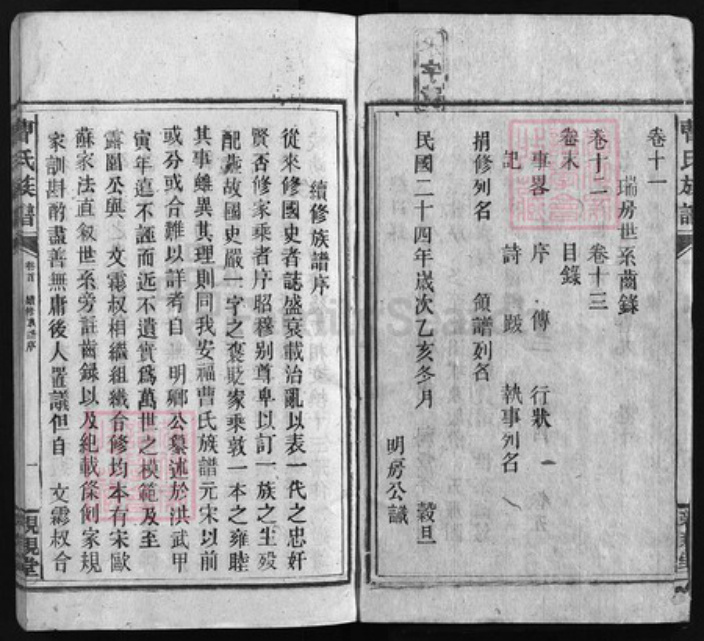 曹氏族譜
卷十一
瑞房世系齒錄
卷十二 卷十三
卷末 目錄
事畧 序 傳 行狀
記 詩 跋 執事列名
捐修列名 領譜列名
民國二十四年歲次乙亥冬月 穀旦
明房公識
續修族譜序
從來修國史者誌盛衰載治亂以表一代之忠奸
賢否修家乘者序昭穆别尊卑以訂一族之生殁
配塟故國史嚴一字之褒貶家乘敦一本之雍睦
其事雖異其理則同我安福曹氏族譜元宋以前
或分或合難以詳考自 明卿公纂述於洪武甲
寅年遠不誣而近不遺實爲萬世之模範及至
露園公與 文霨叔相繼組織合修均本有宋歐
蘇家法直叙世系旁註齒錄以及紀載條例家規
家訓斟酌盡善無庸後人置議但自 文霨叔合
曹氏族譜
卷首 續修族譜序
一
親親堂